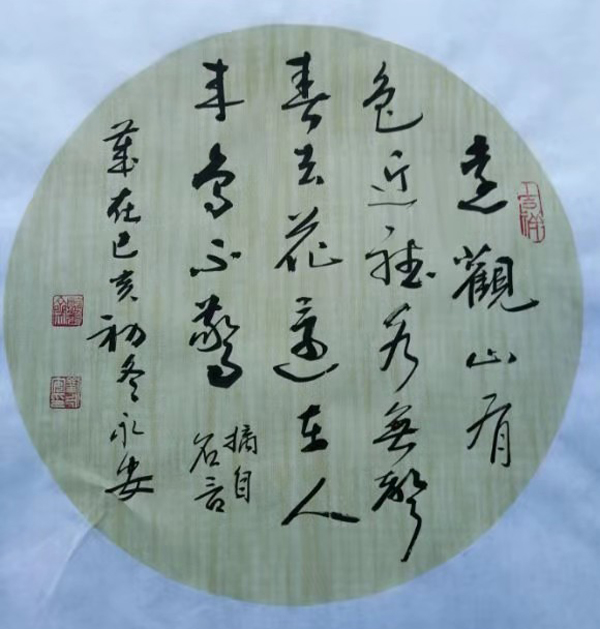 遠觀山有
色近聽無聲
春去花還在人
来鸟不驚
摘自
名言
歲在己亥初冬永安